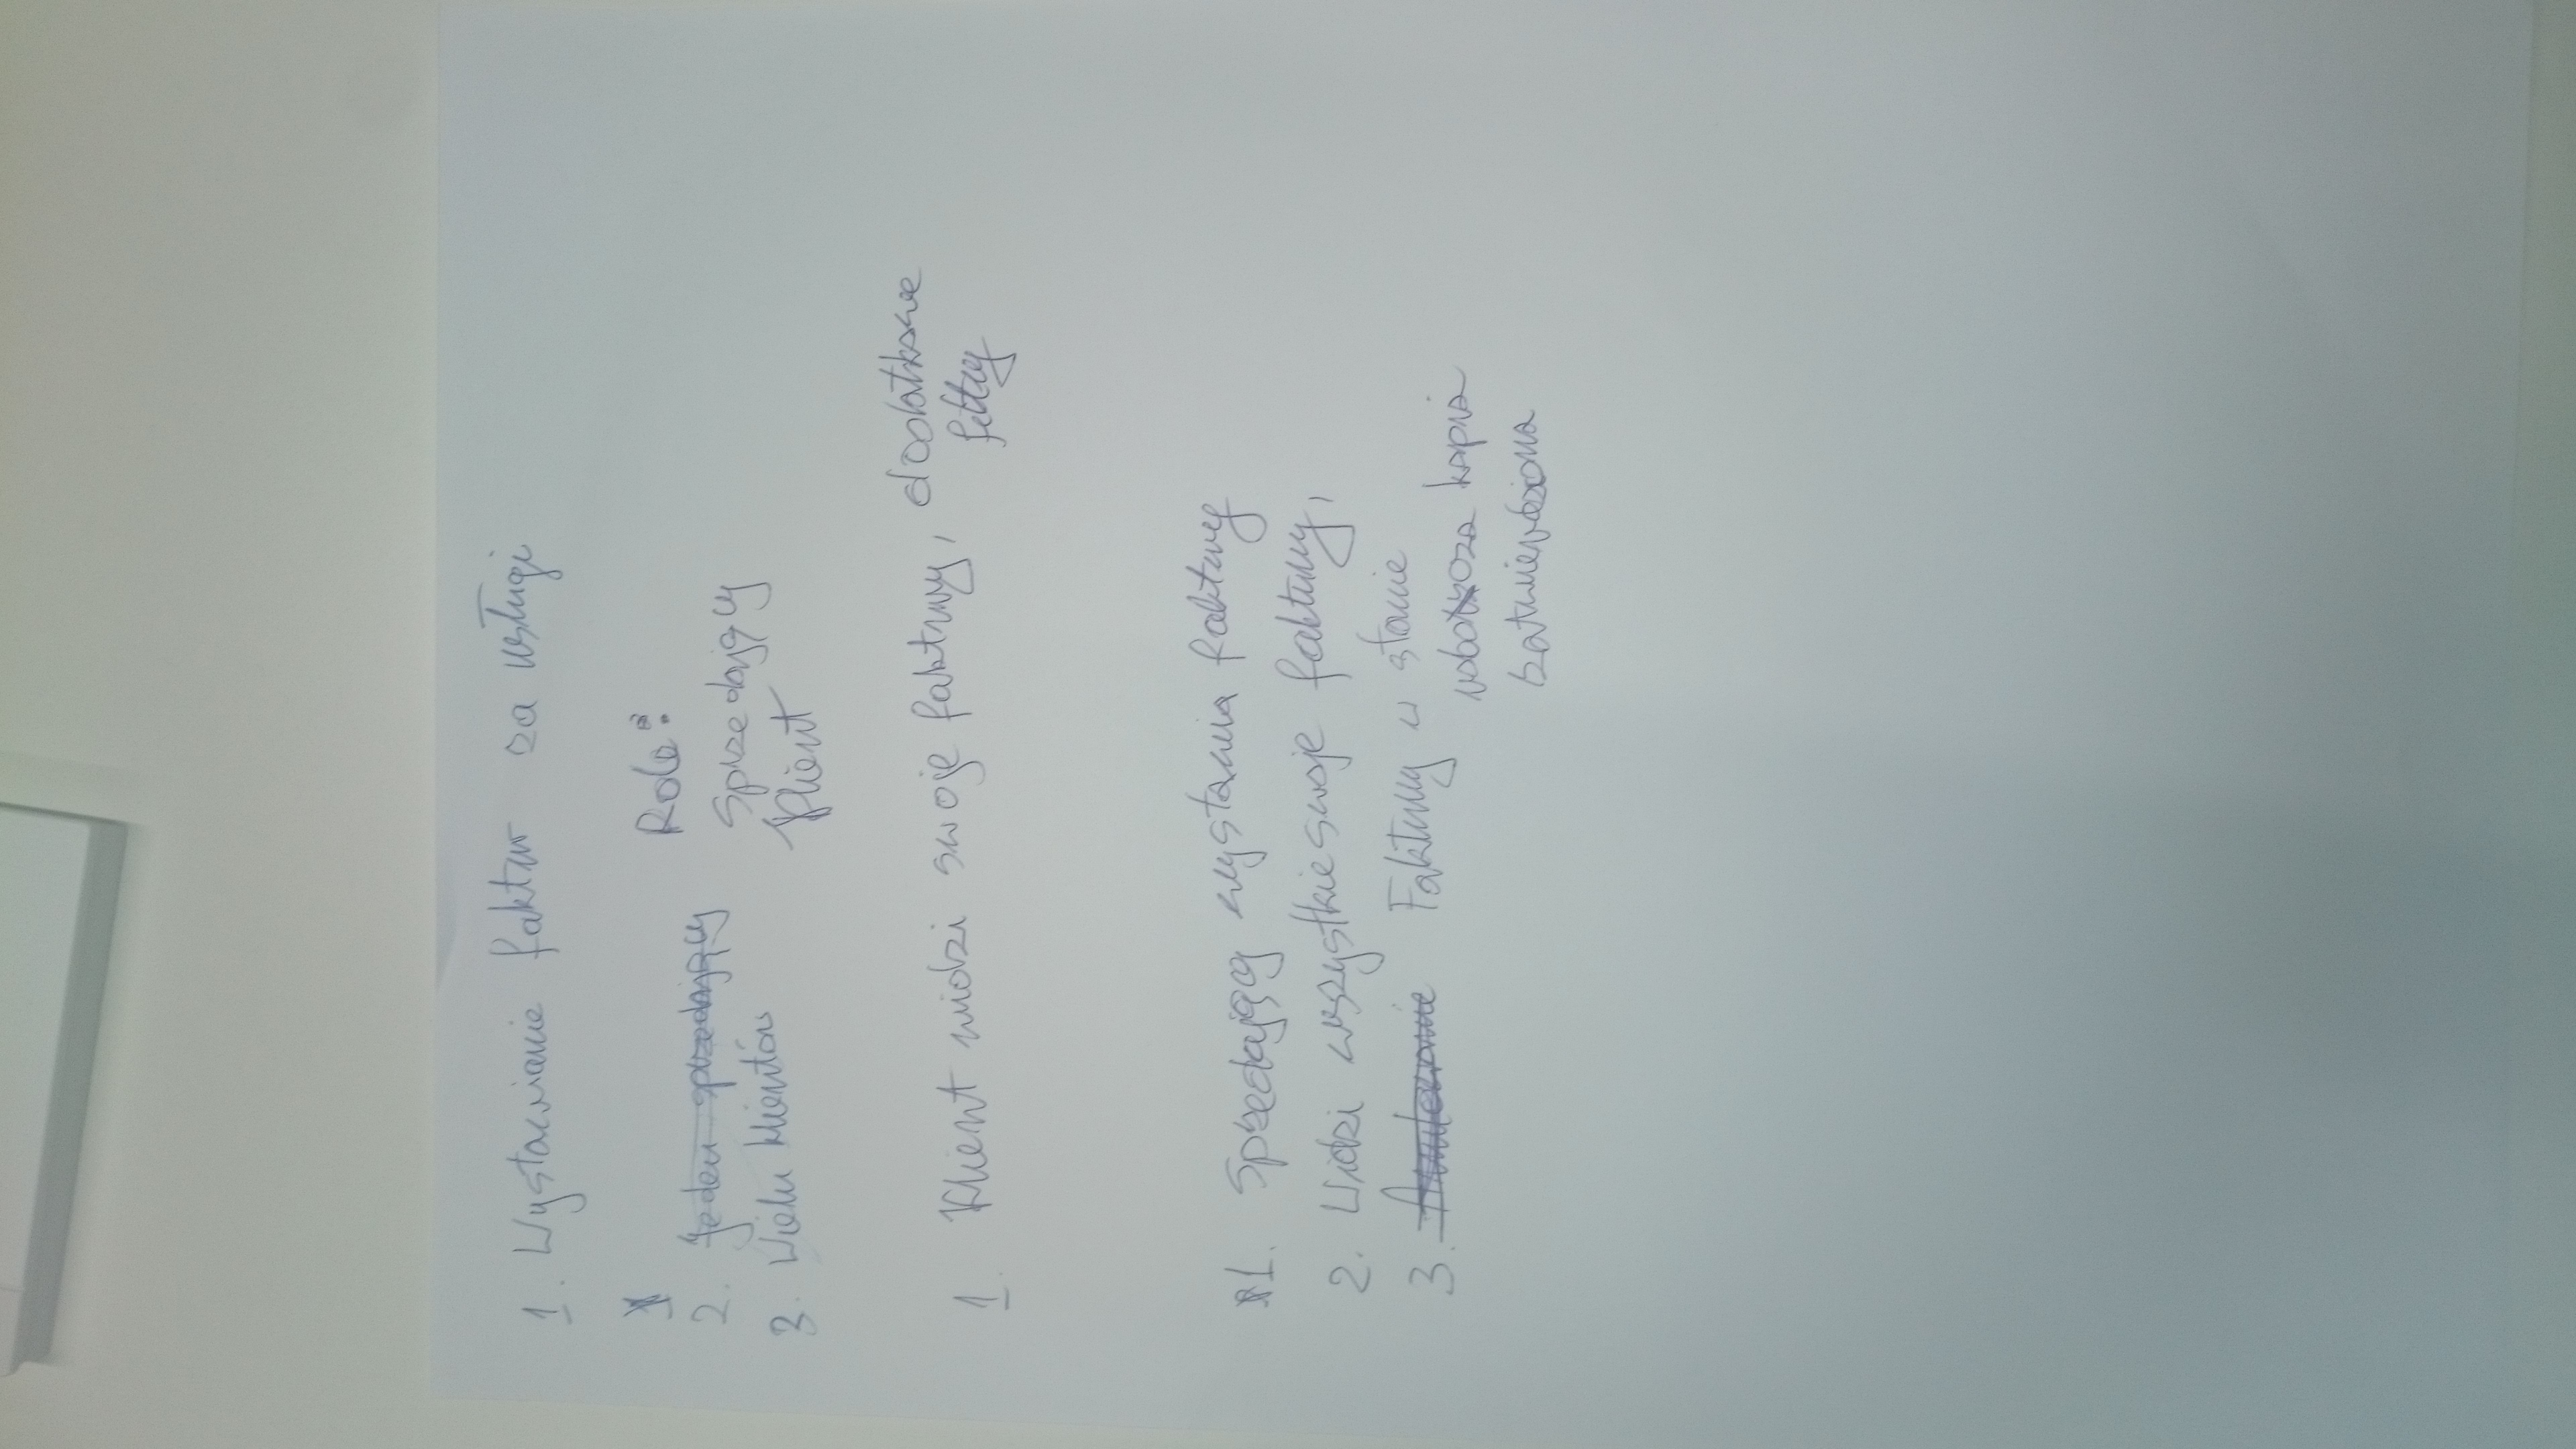 1. Wystawianie faktur za usługi
2. Jeden sprzedający
3. Wielu klientów
Role:
Sprzedający
Klient
1. Klient widzi swoje faktury, dodatkowe
filtry
1. Sprzedający wystawia faktury
2. Widzi wszystkie swoje faktury,
3. Faktury w stanie
robocza kopia
zatwierdzona